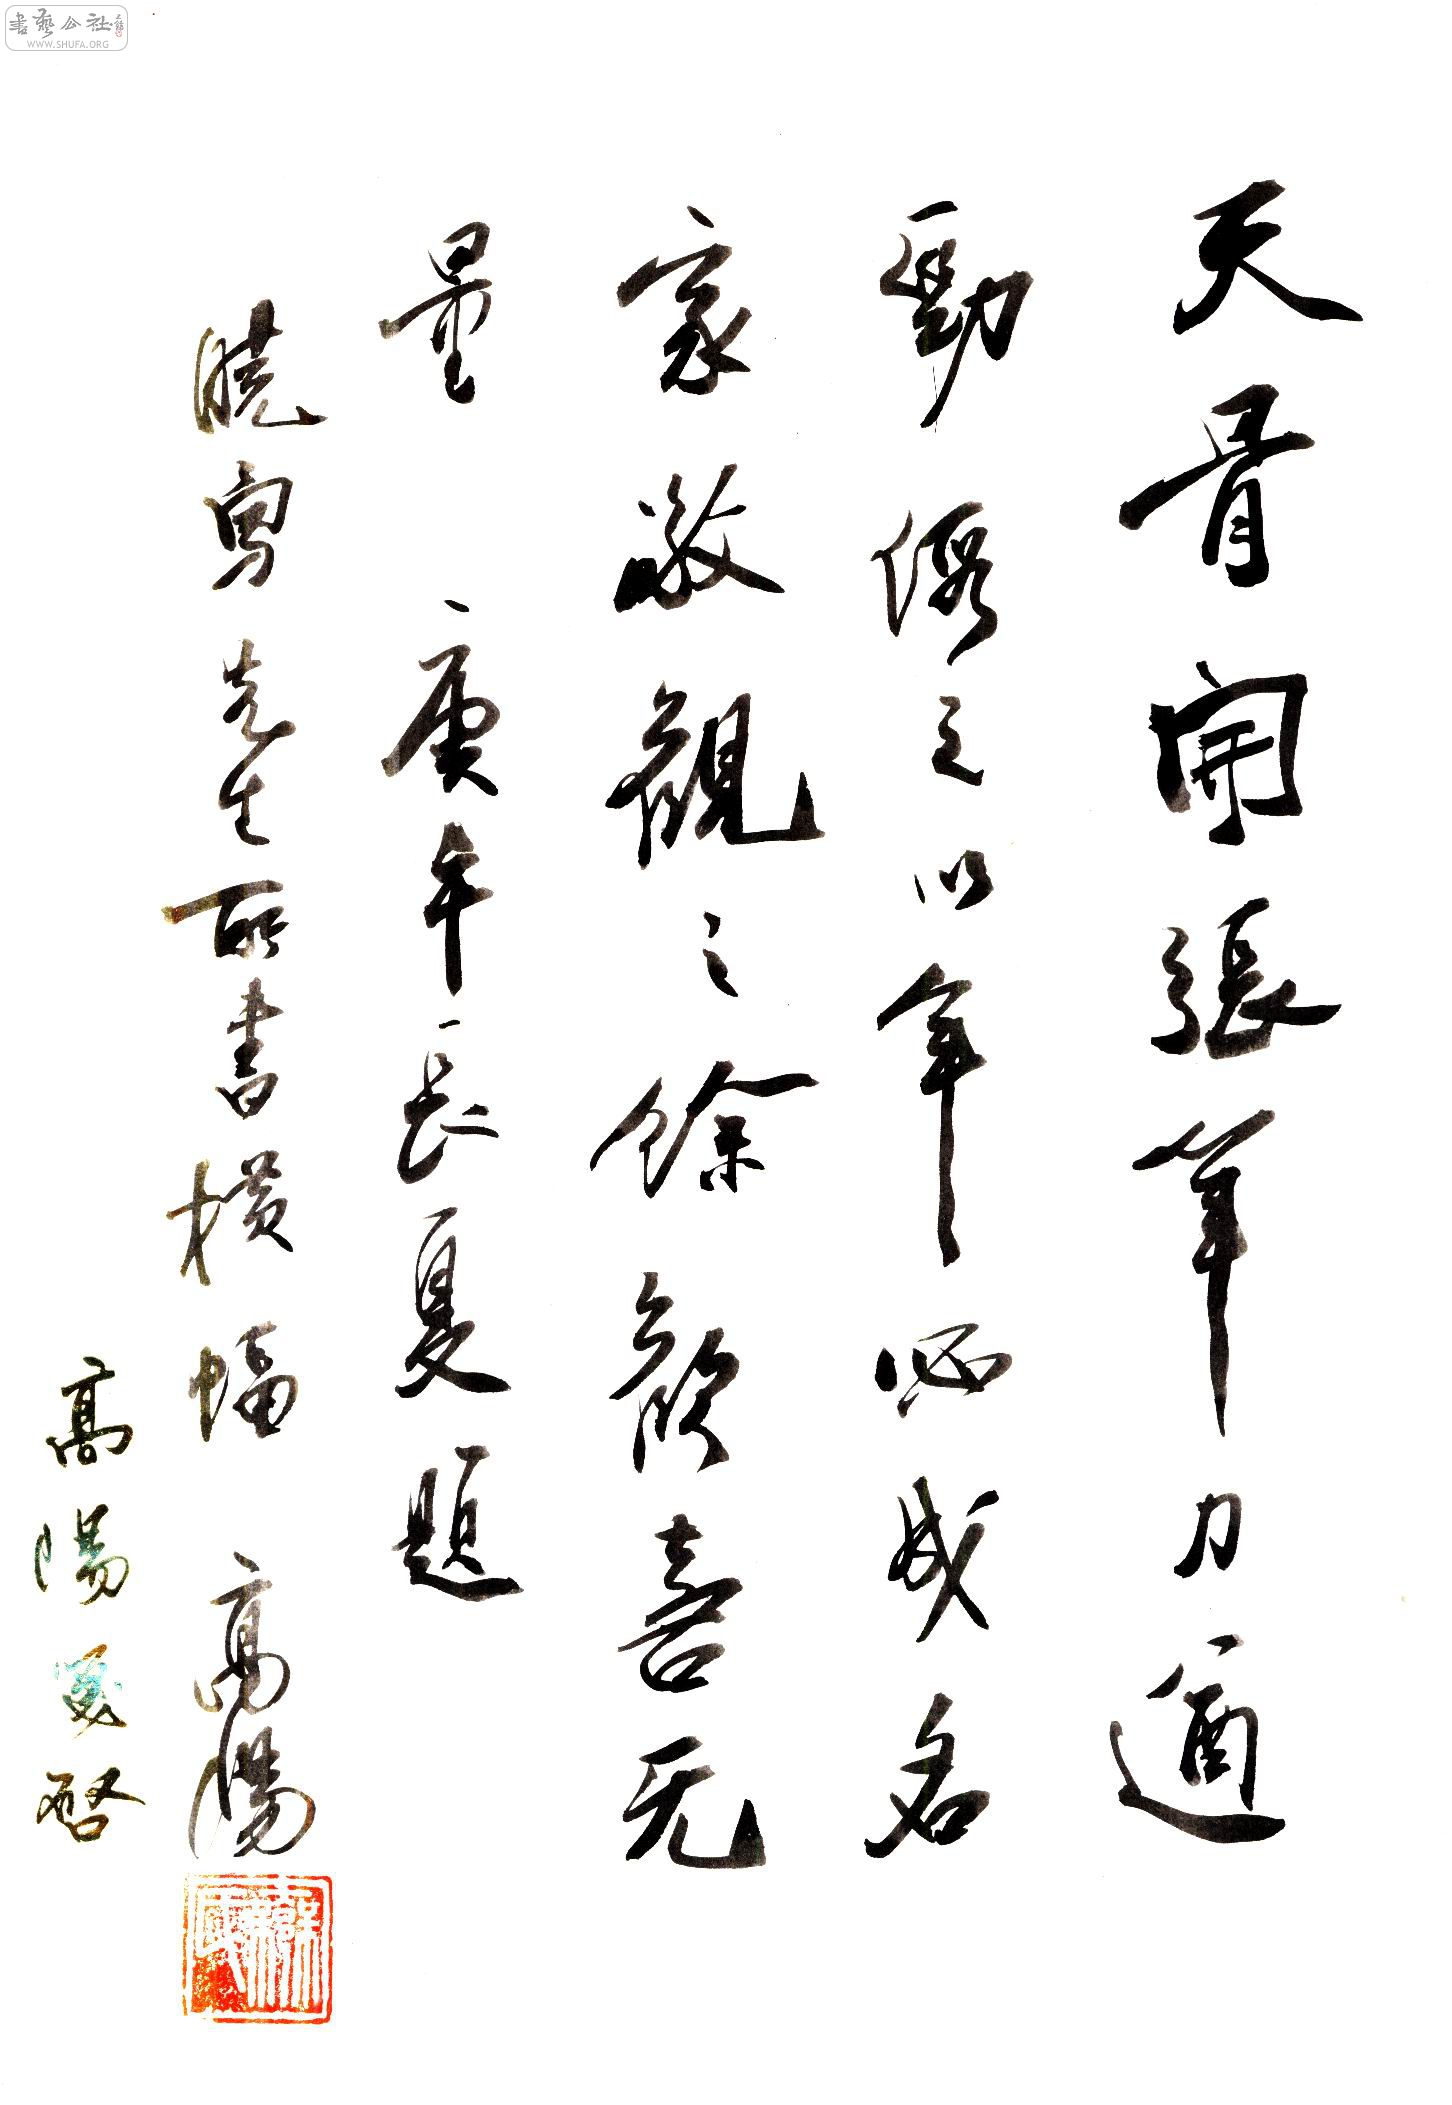 書藝公社
WWW.SHUFA.ORG
天骨開張筆力遒
勁假之以年必成名
家敬觀之餘歡喜无
量 庚午長夏題
曉先生所書橫幅 高陽
高陽啓